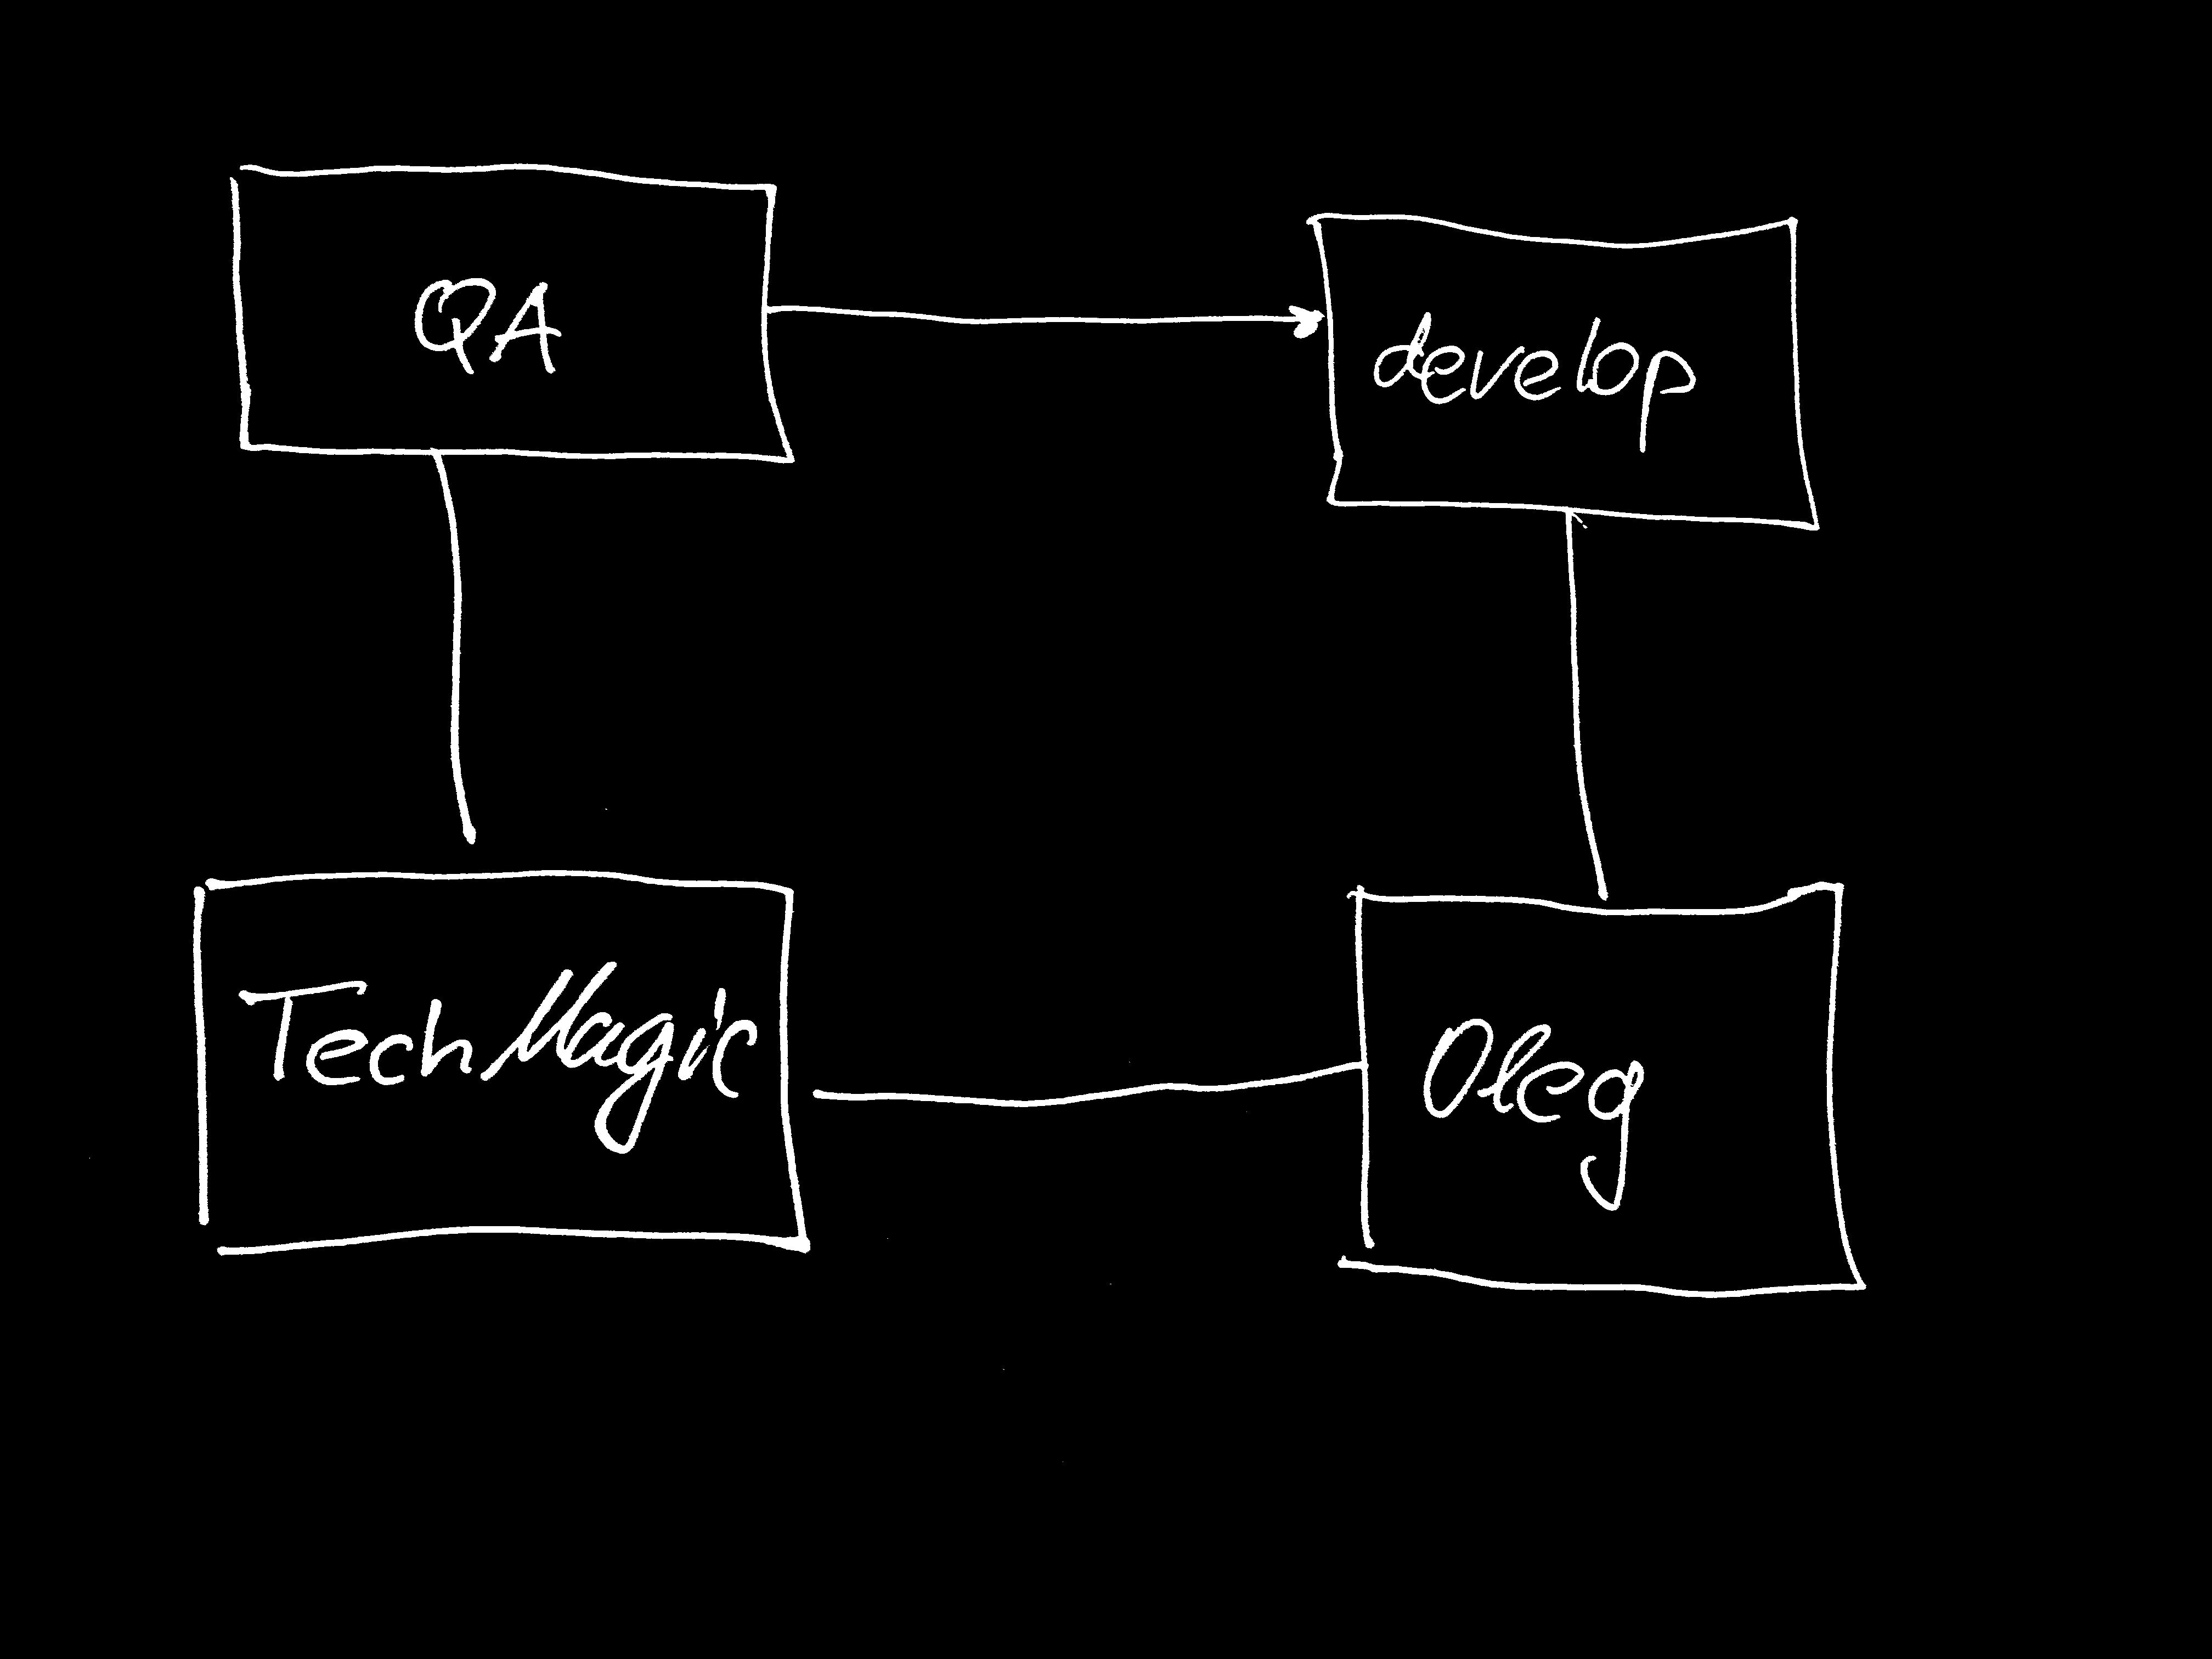 QA
develop
TechMagic
Oleg